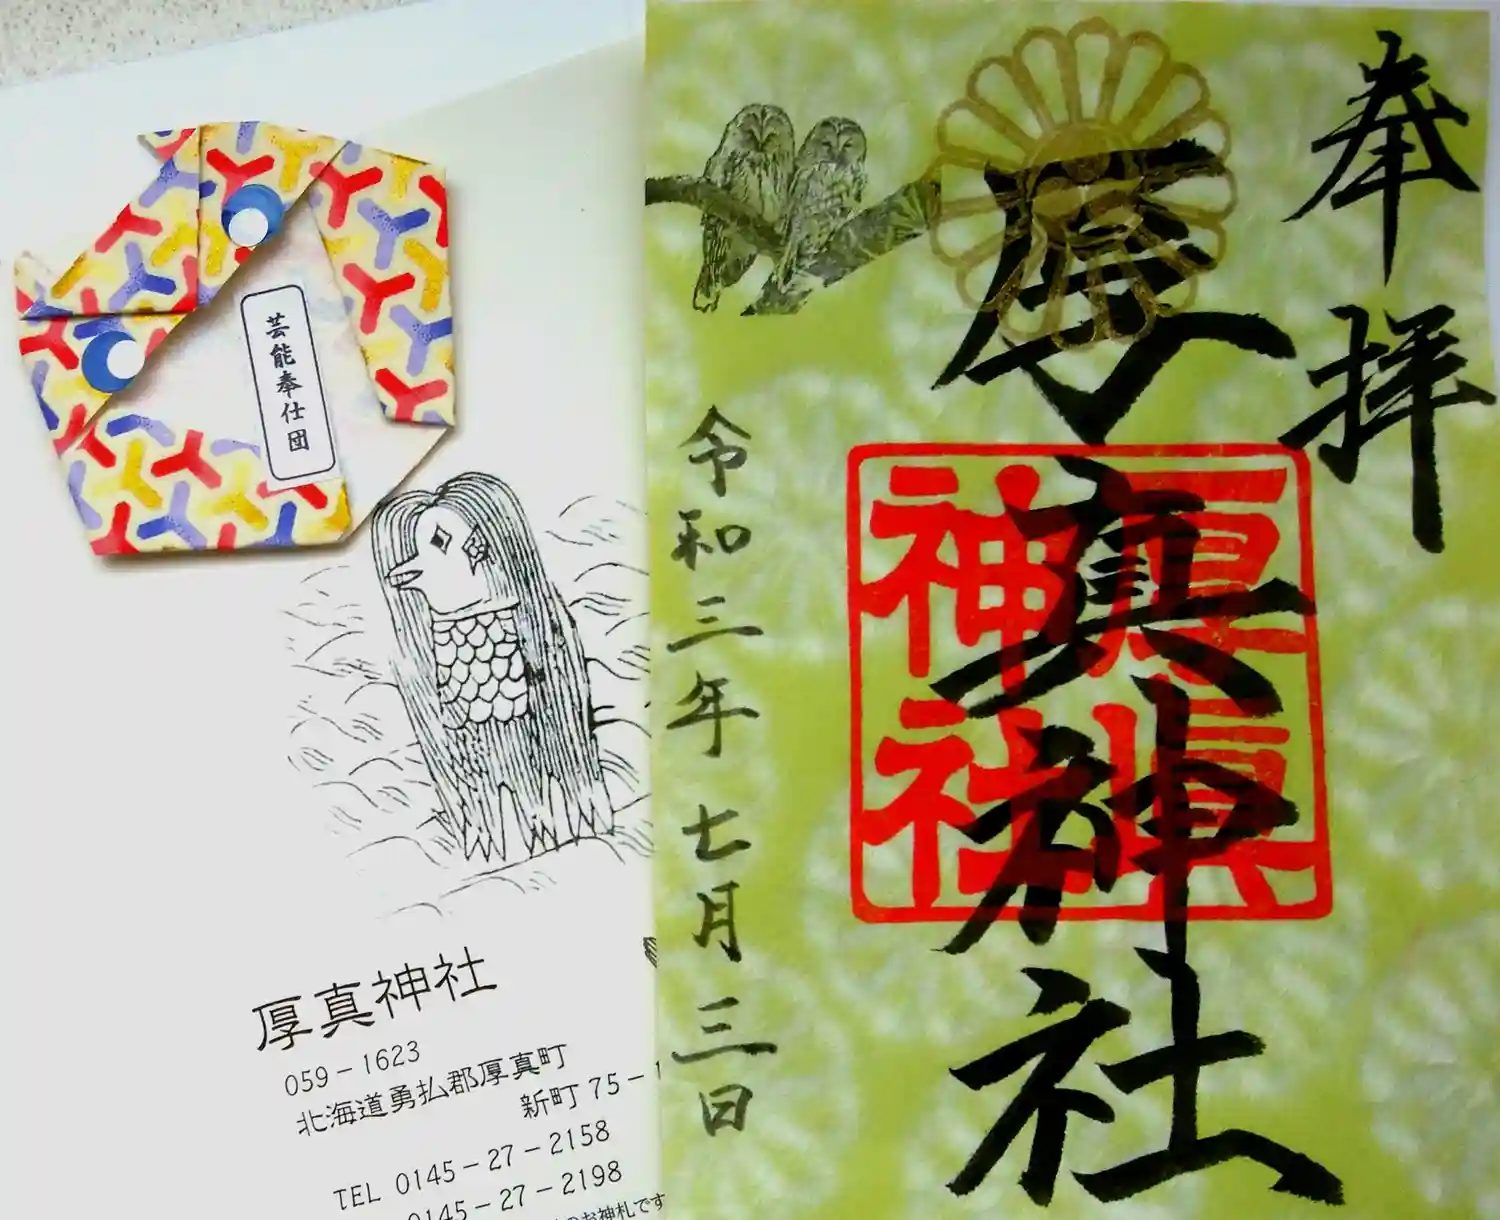 奉拝
厚真神社
厚真
神社
令和三年七月三日
芸能奉仕団
厚真神社
059-1623
北海道勇払郡厚真町
新町75-1
TEL 0145-27-2158
0145-27-2198
のお神札です